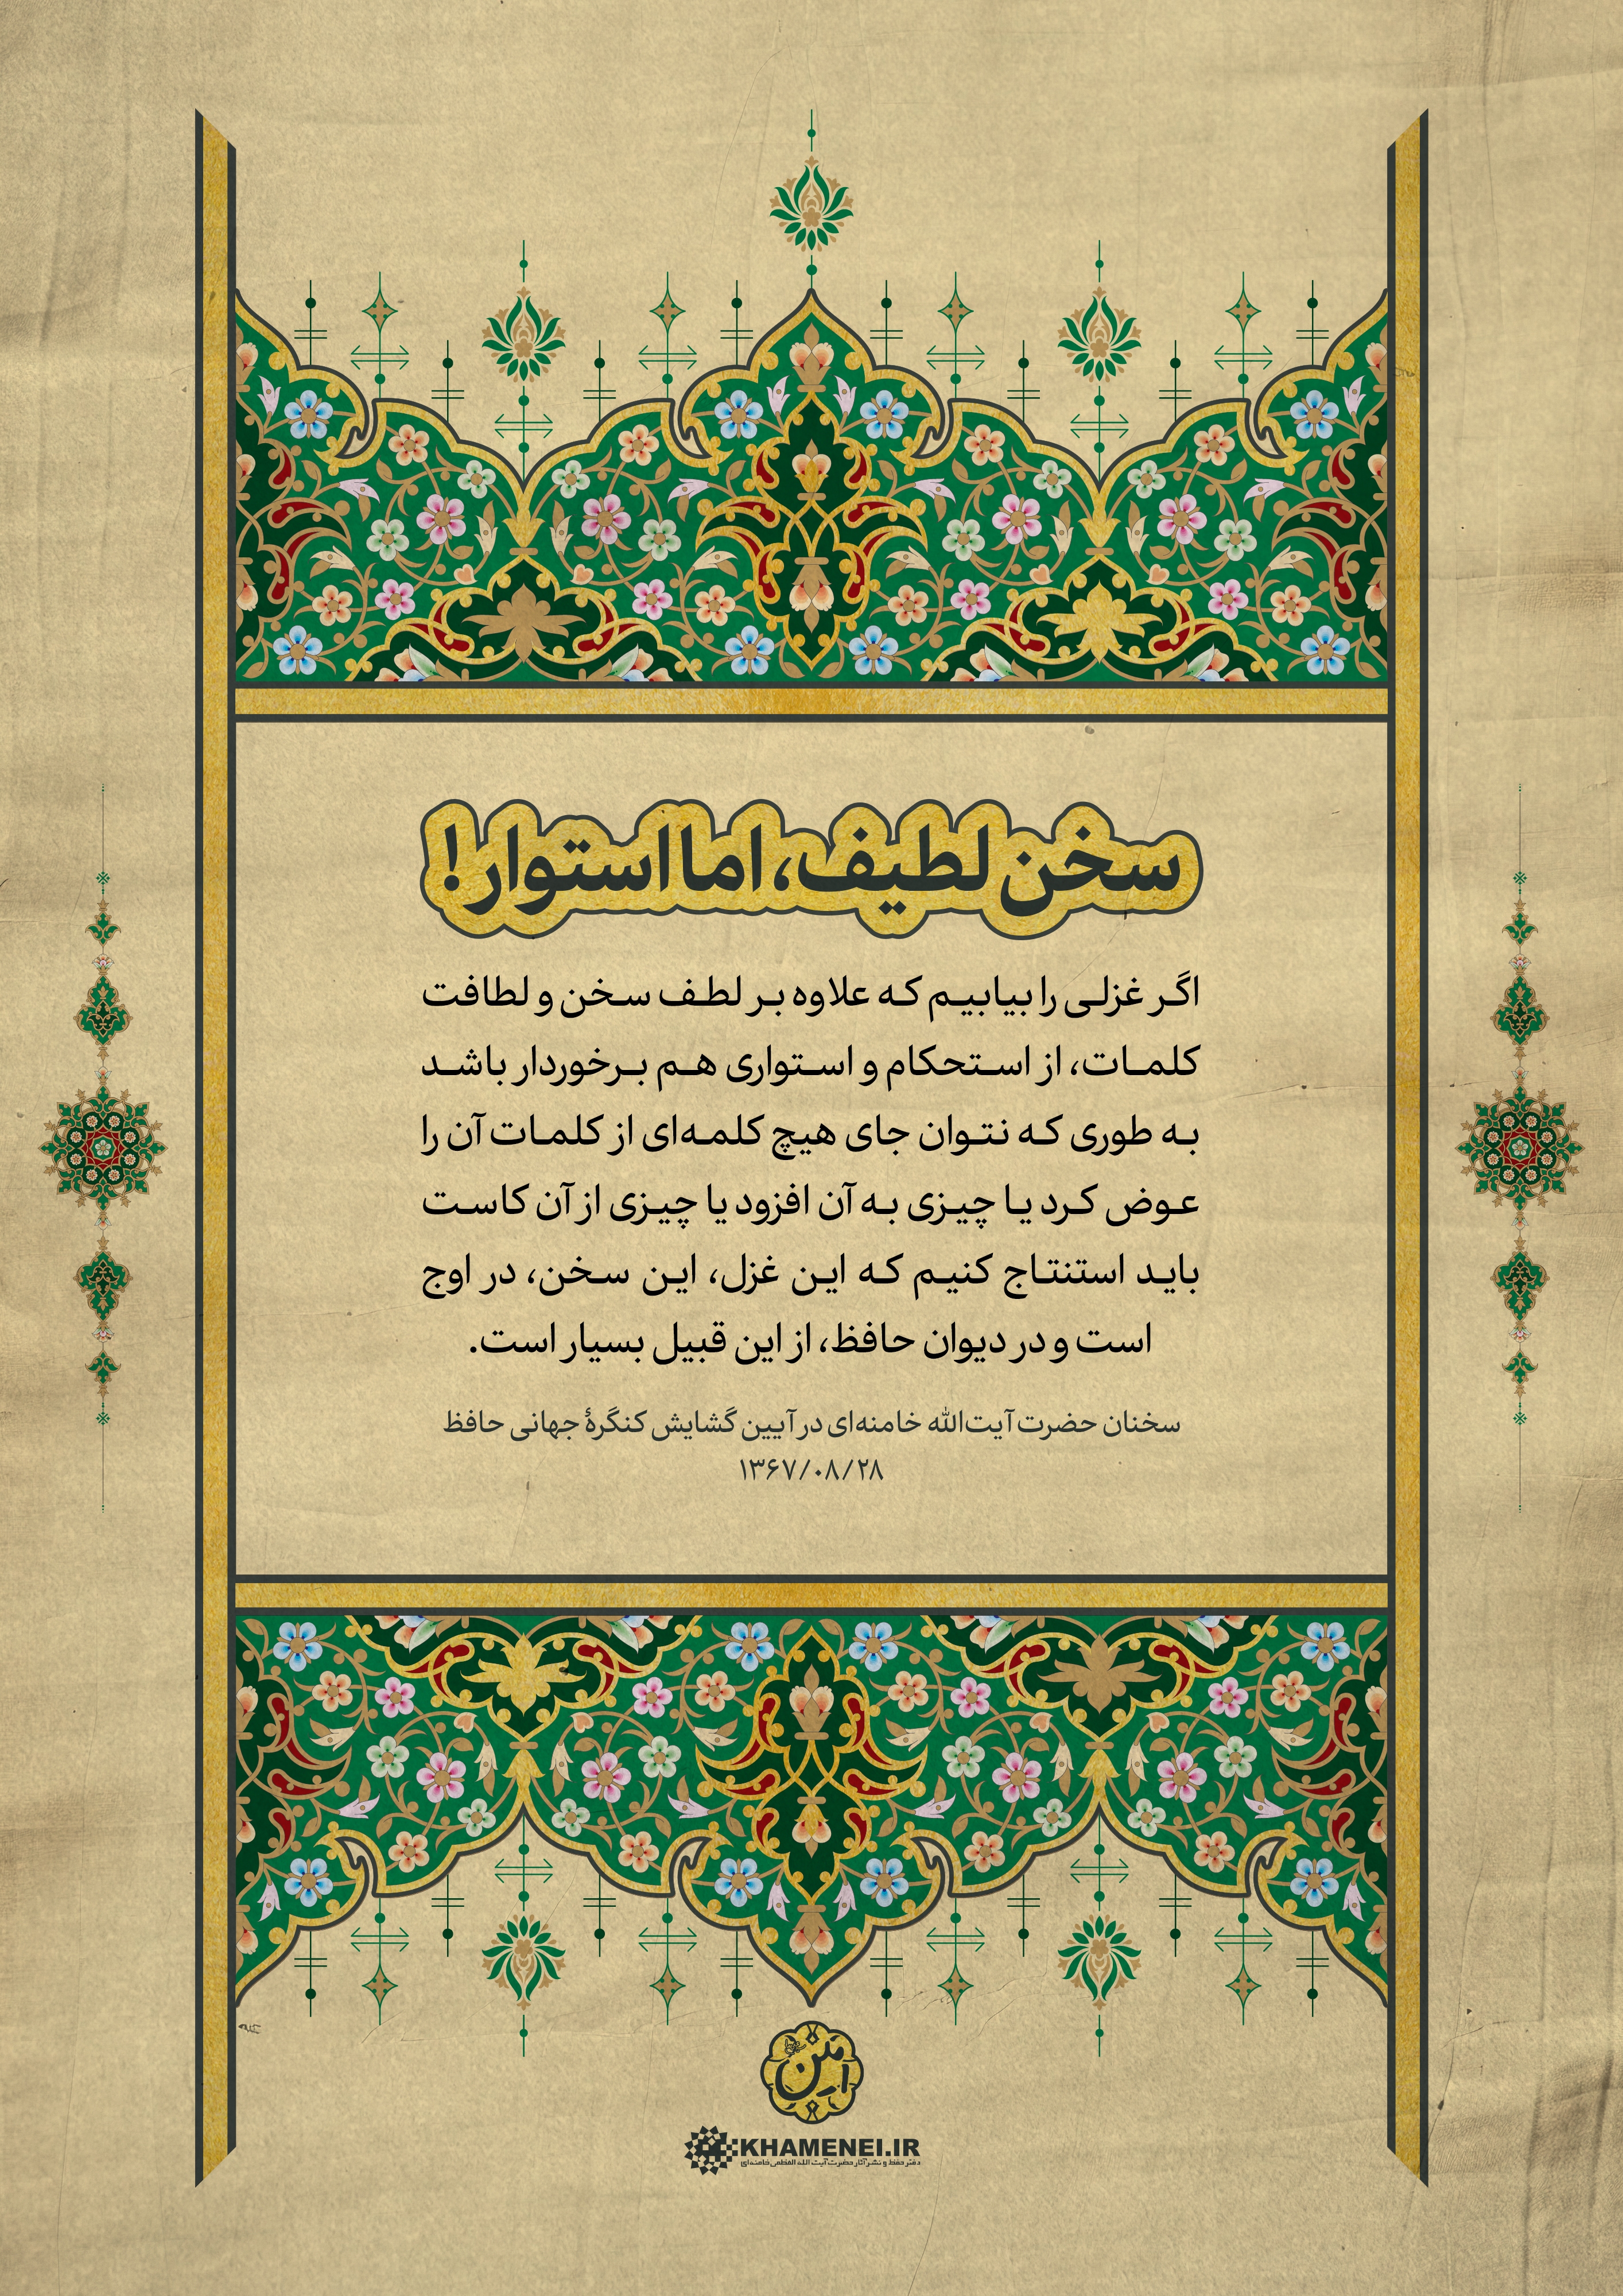 سخن لطیف، اما استوار!
اگر غزلی را بیابیم که علاوه بر لطف سخن و لطافت
کلمات، از استحکام و استواری هم برخوردار باشد
به طوری که نتوان جای هیچ کلمه‌ای از کلمات آن را
عوض کرد یا چیزی به آن افزود یا چیزی از آن کاست
باید استنتاج کنیم که این غزل، این سخن، در اوج
است و در دیوان حافظ، از این قبیل بسیار است.
سخنان حضرت آیت‌الله خامنه‌ای در آیین گشایش کنگرهٔ جهانی حافظ
۱۳۶۷/۰۸/۲۸
KHAMENEI.IR
دفتر حفظ و نشر آثار حضرت آیت الله العظمی خامنه‌ای